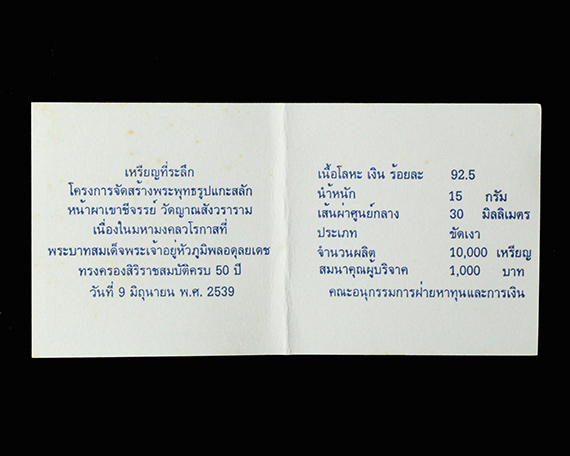 เหรียญที่ระลึก
โครงการจัดสร้างพระพุทธรูปแกะสลัก
หน้าผาเขาชีจรรย์ วัดญาณสังวราราม
เนื่องในมหามงคลวโรกาสที่
พระบาทสมเด็จพระเจ้าอยู่หัวภูมิพลอดุลยเดช
ทรงครองสิริราชสมบัติครบ 50 ปี
วันที่ 9 มิถุนายน พ.ศ. 2539
เนื้อโลหะ เงิน ร้อยละ 92.5
น้ำหนัก 15 กรัม
เส้นผ่าศูนย์กลาง 30 มิลลิเมตร
ประเภท ขัดเงา
จำนวนผลิต 10,000 เหรียญ
สมนาคุณผู้บริจาค 1,000 บาท
คณะอนุกรรมการฝ่ายหาทุนและการเงิน